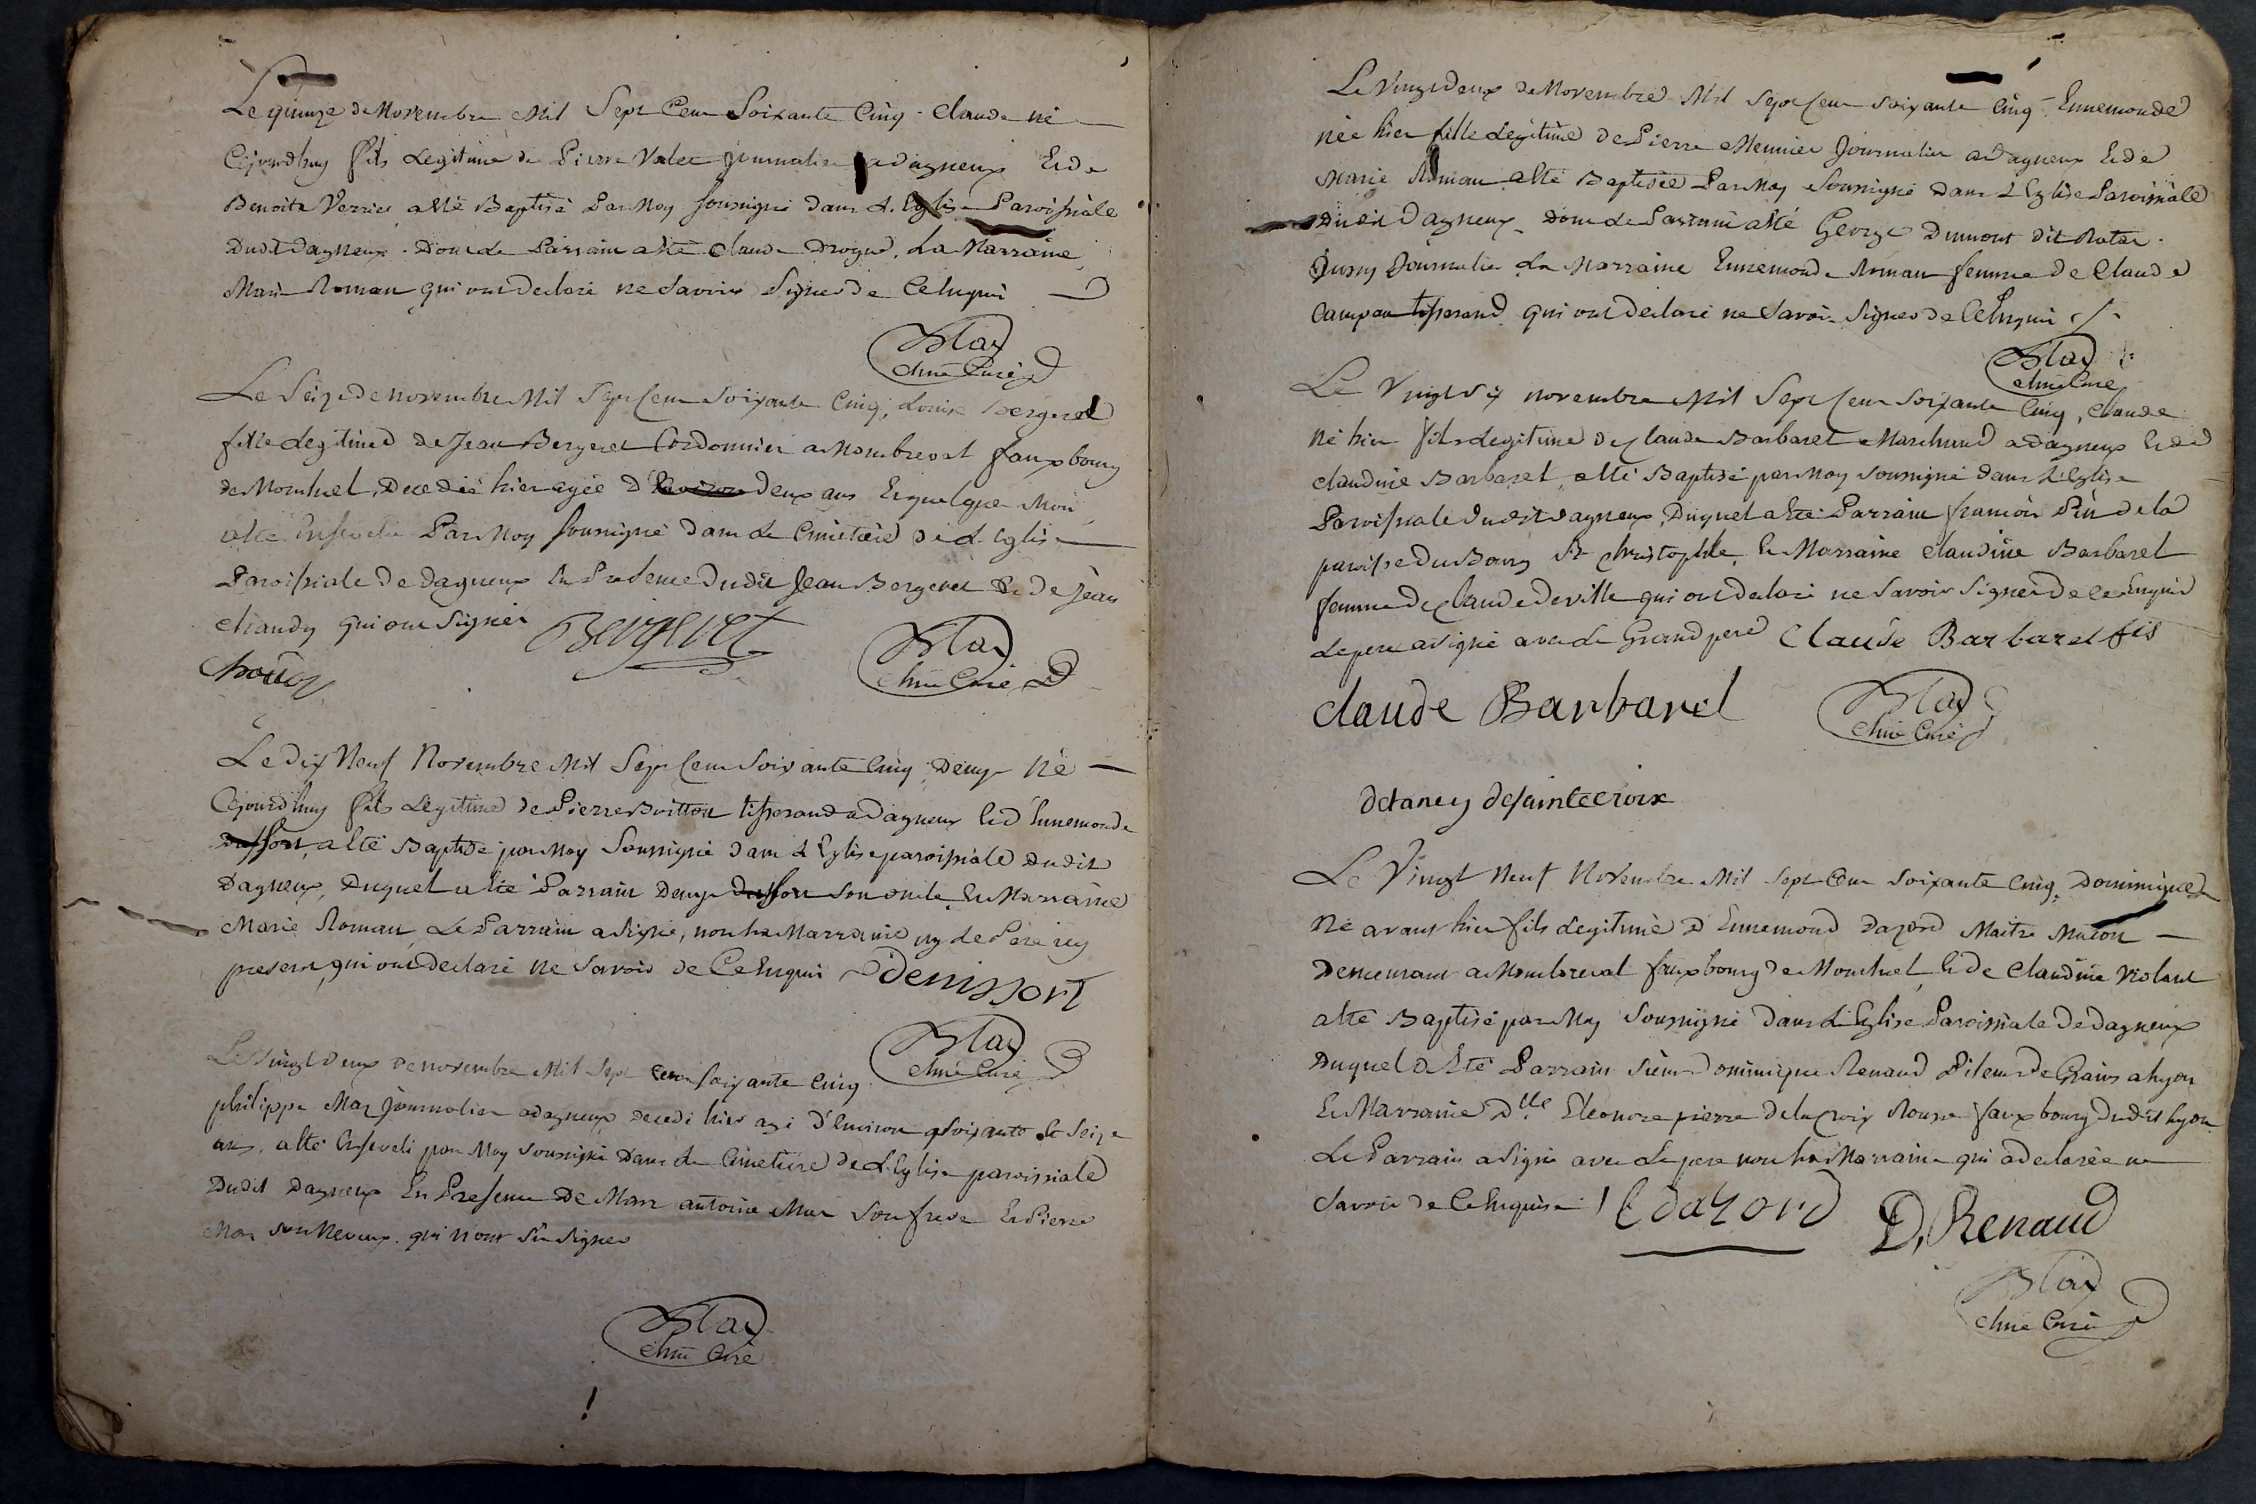 Le quinze de Novembre Mil Sept Cent Soixante Cinq. Claude né
Cejourdhuy fils Legitime de Pierre Valet journalier a dagneux Et de
Benoite Verrier a été Baptisé Par Moy soussigné dans L'Eglise Paroissiale
Dudit Dagneux. Dont Le Parrain a été Claude Drogue, La Marraine
Marie Roman qui ont declaré ne Savoir Signer de Ce Enquis
Blad
Curé
Le Seize de novembre Mil Sept Cent Soixante Cinq, Louise Bergeret
fille Legitime de Jean Bergeret Cordonnier a Montbreval fauxbourg
de Montluel, Decedée hier agée d' deux ans Et quelque Mois
a été Ensevelie Par Moy soussigné dans Le Cimetiere de L'Eglise
Paroissiale de Dagneux En Presence Dudit Jean Bergeret Et de Jean
qui ont Signés
Bergeret
Blad
Curé
Le Dix Neuf Novembre Mil Sept Cent Soixante Cinq, Denys Né
Cejourdhuy fils Légitime de Pierre Boitton tisserand a Dagneux Et d'Ennemonde
a été Baptisé par Moy Soussigné dans L'Eglise paroissiale Dudit
Dagneux, Duquel a été Parrain Denys son oncle, Et Marraine
Marie Roman, Le Parrain a signé, non La Marraine ny le Pere icy
present, qui ont declaré ne Savoir de Ce Enquis
Blad
Curé
Le Vingt deux de novembre Mil Sept Cent soixante Cinq
philippe Mas journalier a dagneux decedé hier agé d'Environ soixante Et Seize
ans, a été Enseveli par Moy soussigné Dans Le Cimetiere de L'Eglise paroissiale
Dudit Dagneux En Presence De Marc antoine Mas son frere Et Pierre
Mas son Neveux qui n'ont Su Signer
Blad
Curé
Le Vingt deux de Novembre Mil Sept Cent Soixante Cinq Ennemonde
née hier fille Legitime de Pierre Meunier Journalier a Dagneux Et de
Marie Roman a été Baptisée Par Moy Soussigné Dans L'Eglise Paroissiale
Dudit Dagneux, Dont Le Parrain a été George Dumont dit
Journalier La Marraine Ennemonde Roman femme de Claude
tisserand qui ont declaré ne Savoir Signer de Ce Enquis
Blad
Curé
Le Vingt Six novembre Mil Sept Cent Soixante Cinq, Claude
Né hier fils Legitime de Claude Barbaret Marchand a Dagneux Et de
Claudine Barbaret, a été Baptisé par Moy soussigné dans L'Eglise
Paroissiale dudit dagneux, Duquel a été Parrain francois de la
paroisse Du Bourg St Christophle, Et Marraine Claudine Barbaret
femme de Claude deville qui ont declaré ne Savoir Signer de ce Enquis
Le pere a signé avec Le Grand pere Claude Barbaret fis
Claude Barbaret
Blad
Curé
delaney desaintecroix
Le Vingt Neuf Novembre Mil Sept Cent Soixante Cinq, Dominique
Né avant hier fils Legitime d'Ennemond Dazord Maitre Maçon
Demeurant a Montbreval fauxbourg de Montluel, Et de Claudine Violant
a été Baptisé par Moy Soussigné Dans L'Eglise Paroissiale De Dagneux
Duquel a été Parrain Sieur Dominique Renaud Pileur de Grains a Lyon
Et Marraine Dlle Eleonore pierre de la Croix Rousse fauxbourg dudit Lyon
Le Parrain a signé avec Le pere non La Marraine qui a declarée ne
Savoir de Ce Enquise
E dazord
D, Renaud
Blad
Curé